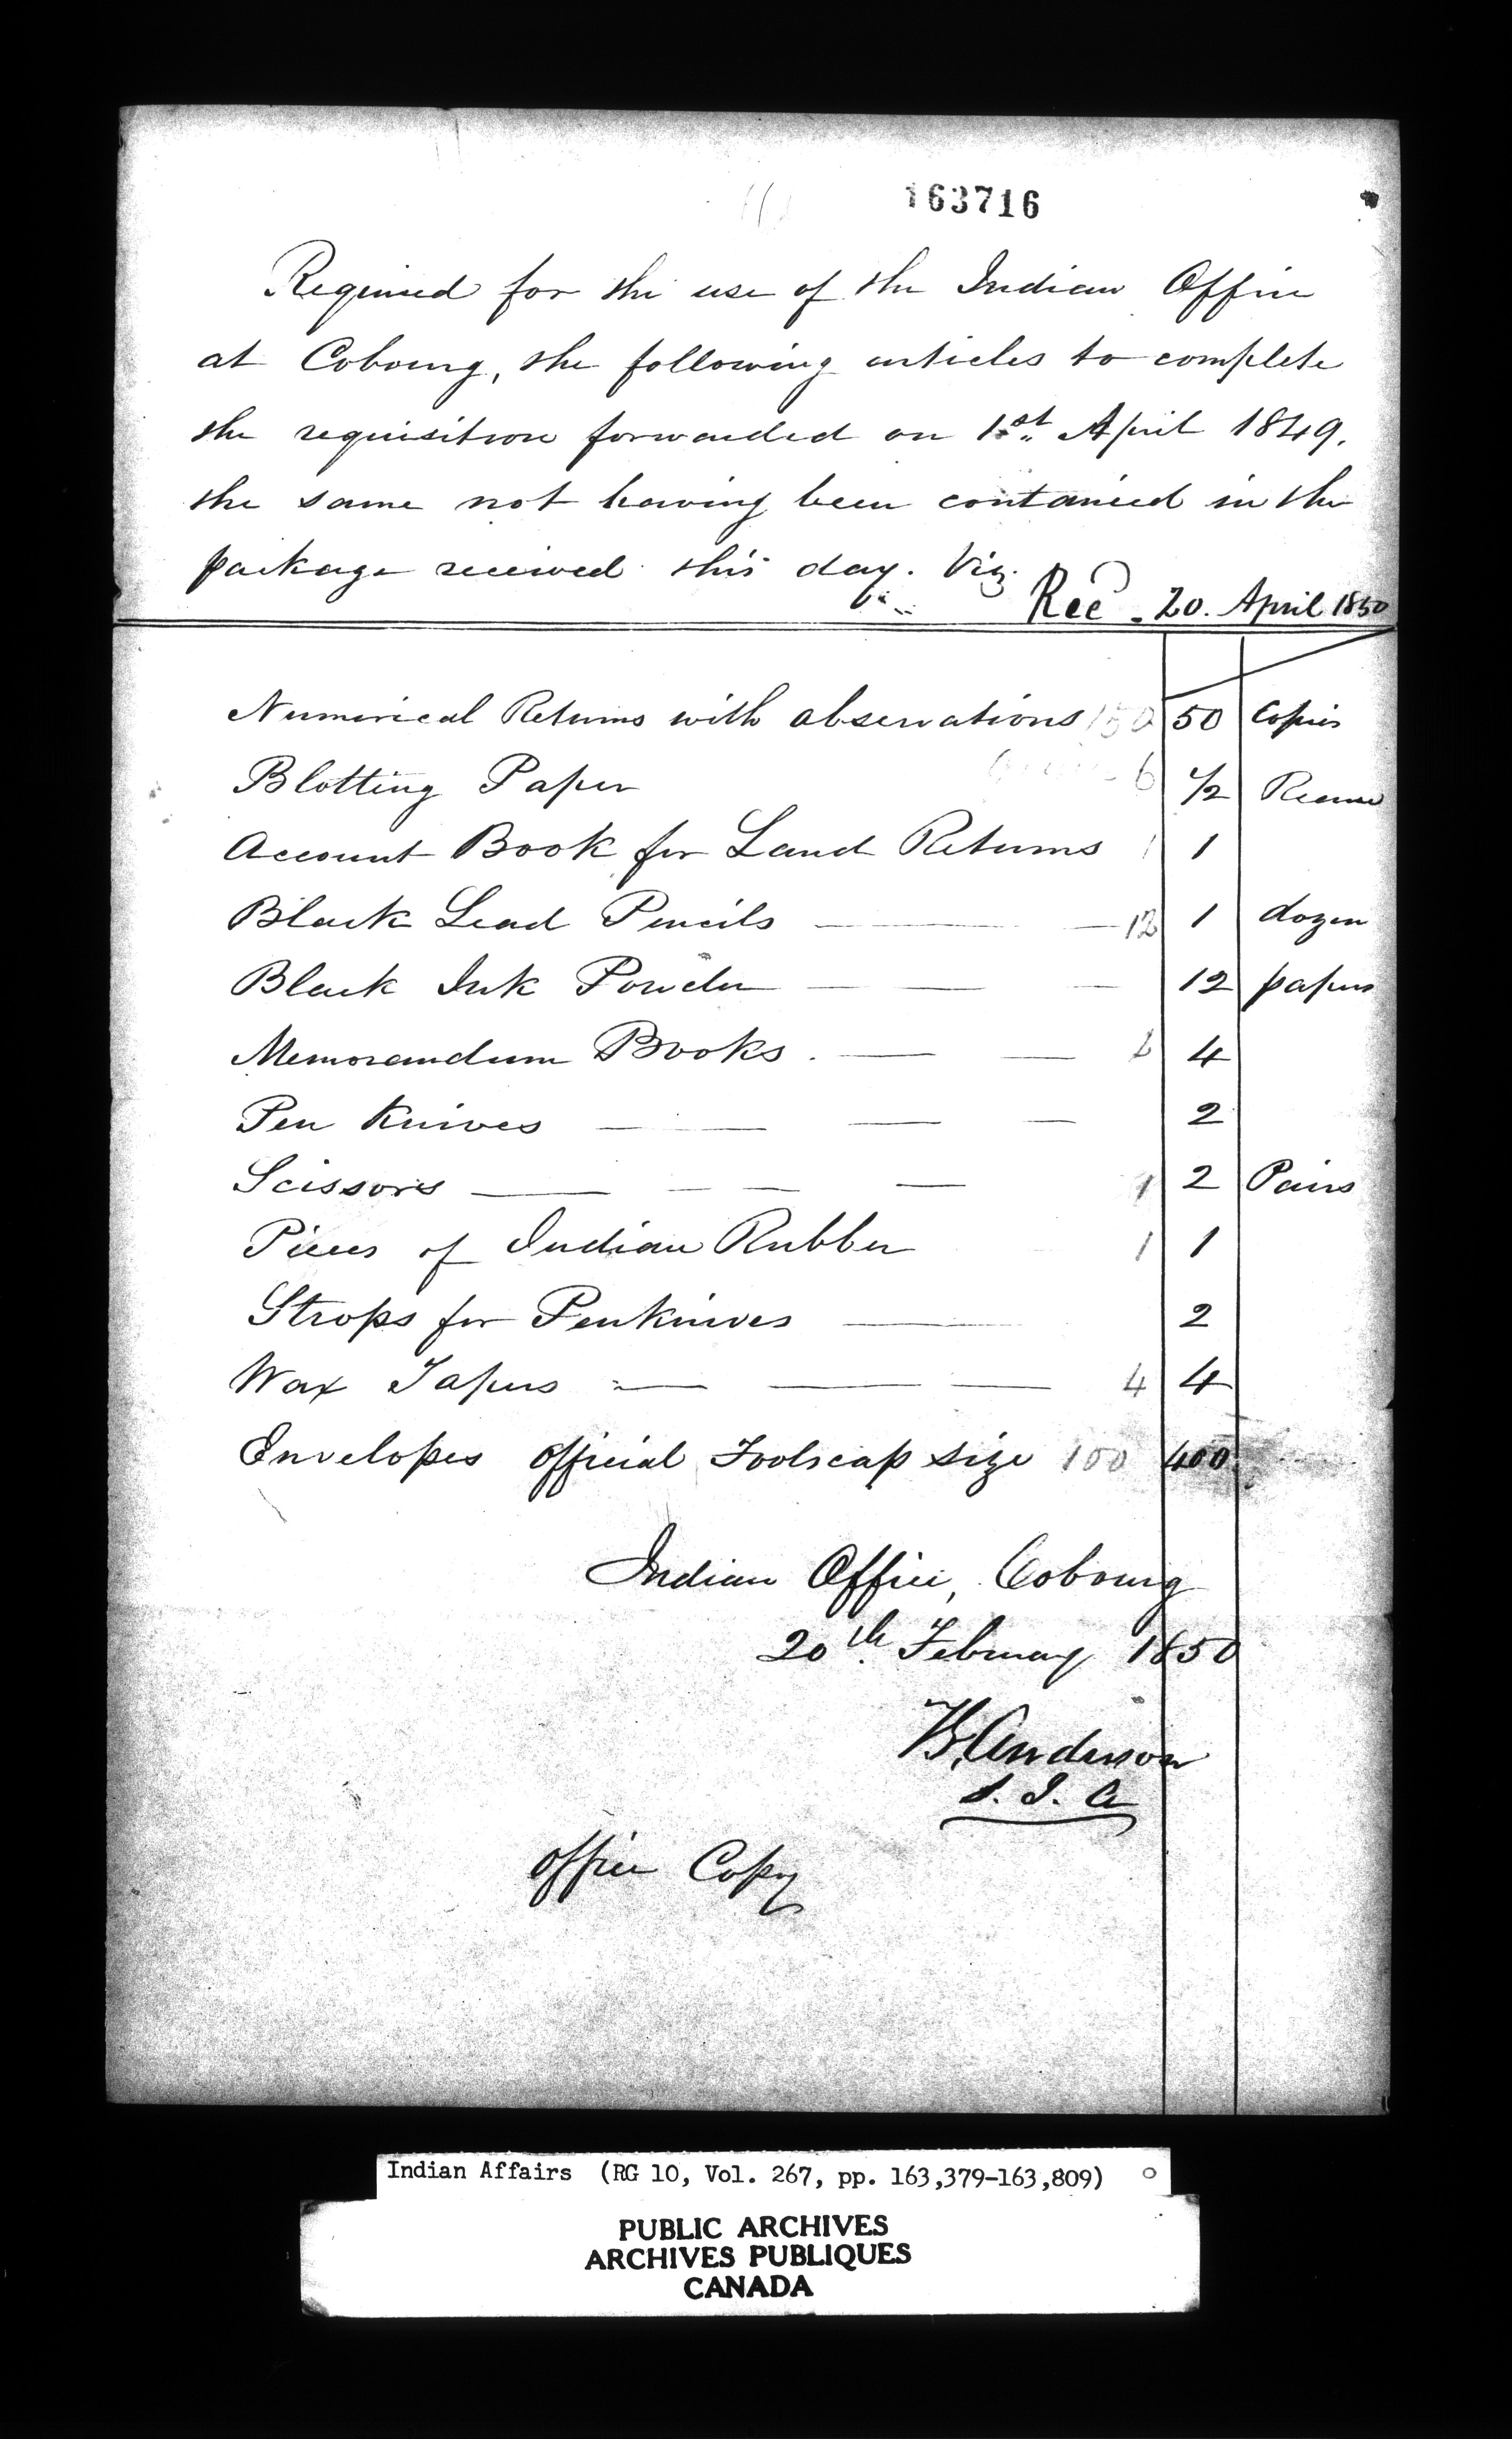 163716
Required for the use of the Indian Office
at Cobourg, the following articles to complete
the requisition forwarded on 1st April 1849.
the same not having been contained in the
package received this day. Viz.
Rec'd 20. April 1850
Numerical Returns with observations 150 50 Copies
Blotting Paper 6 1/2 Ream
Account Book for Land Returns 1 1
Black Lead Pencils 12 1 dozen
Black Ink Powder 12 papers
Memorandum Books. 4
Pen Knives 2
Scissors 1 2 Pairs
Pieces of Indian Rubber 1 1
Strops for Penknives 2
Wax Tapers 4 4
Envelopes official Foolscap size 100 400
Indian Office, Cobourg
20th February 1850
Anderson
S. I. A
Office Copy
Indian Affairs (RG 10, Vol. 267, pp. 163,379-163,809)
PUBLIC ARCHIVES
ARCHIVES PUBLIQUES
CANADA